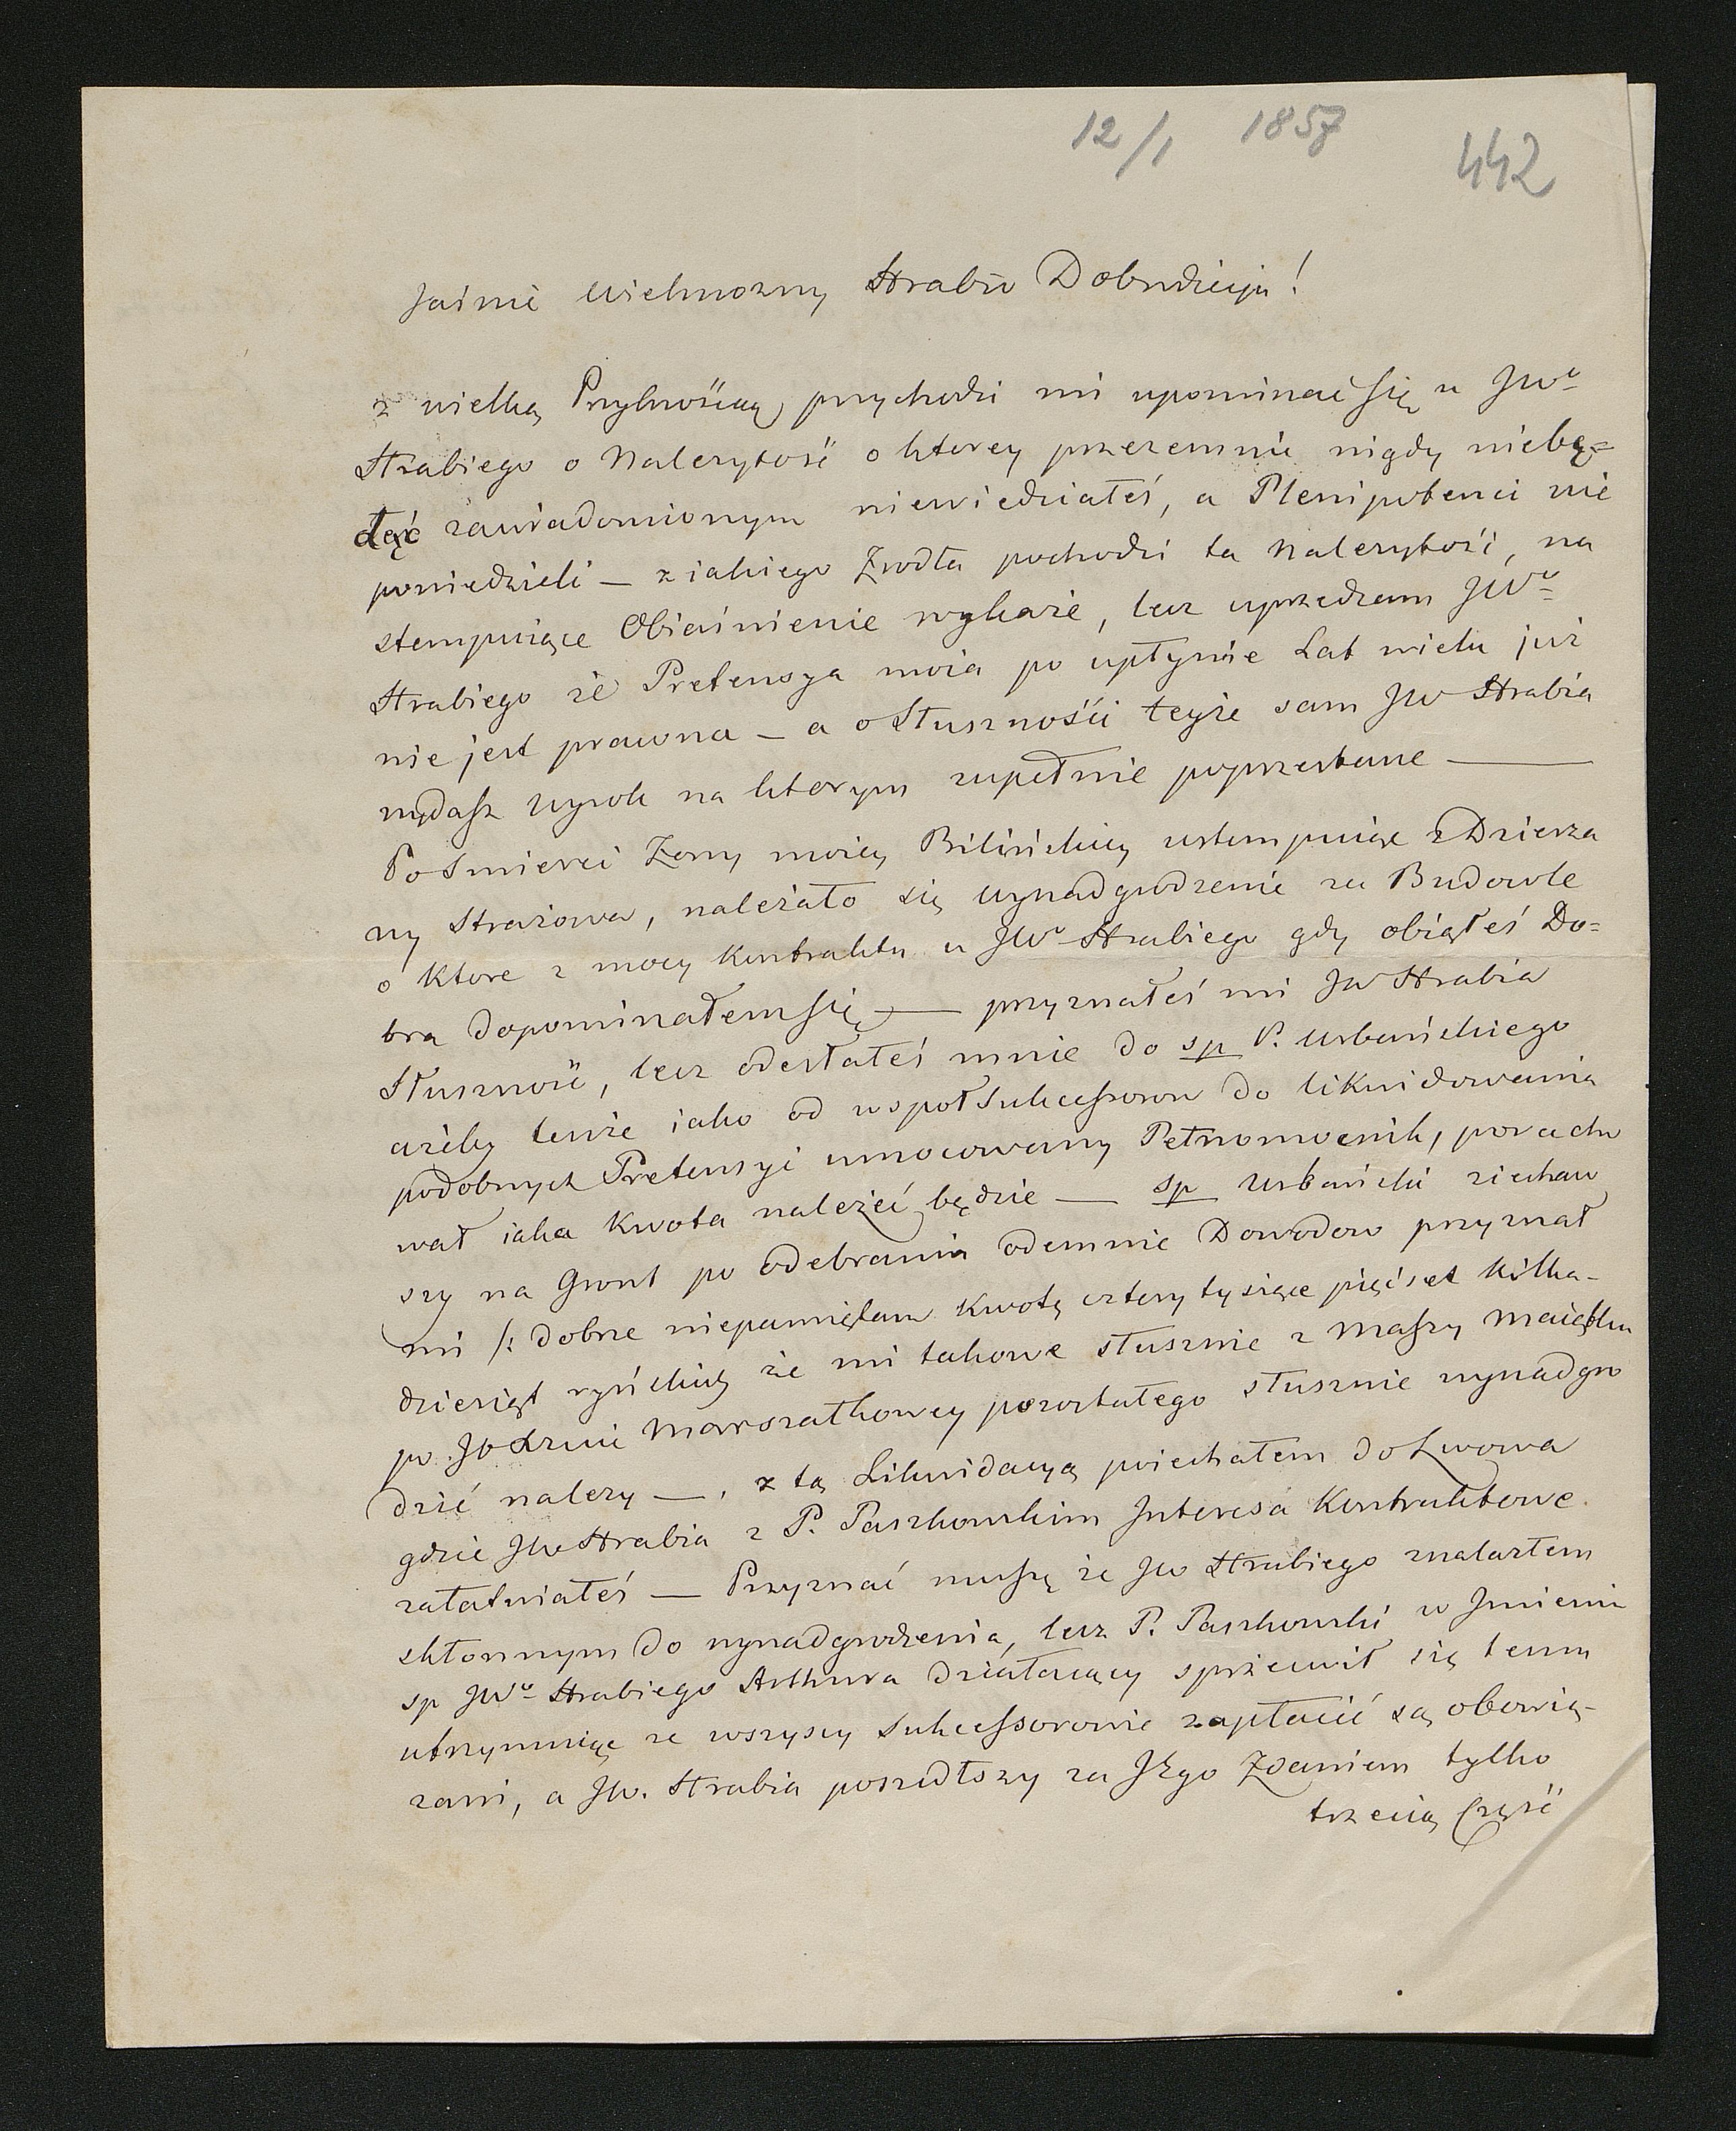 12/1 1857
442
Jaśnie Wielmożny Hrabio Dobrodzieju!
z wielką Przykrością przychodzi mi upominać się u JWo
Hrabiego o Należytość o ktorey przezemnie nigdy niebę=
dąć zawiadomionym niewiedziałeś, a Plenipotenci nie
powiedzieli — z iakiego Zrodła pochodzi ta Należytość, na
stempuiące Obiaśnienie wykaże, lecz uprzedzam JWo
Hrabiego że Pretensya moia po upłynie Lat wielu już
nie jest prawna — a o Słuszności teyże sam JW Hrabia
wydasz Wyrok na ktorym zupełnie poprzestane —
Po Smierci Zony moiey Bilińskiey ustempuiąc z Dzierza
wy Hrażowa, należało się Wynadgrodzenie za Budowle
o Ktore z mocy Kontraktu u JWo Hrabiego gdy obiąłeś Do=
bra dopominałem się — przyznałeś mi JW Hrabia
Słuszność, lecz odesłałeś mnie do sp P. Urbańskiego
ażeby tenże iako od wspoł Sukcessorow do likwidowania
podobnych Pretensyi umocowany Pełnomocnik, porachu
wał iaka Kwota należeć będzie — sp Urbański ziechaw
szy na Gront po odebraniu odemnie Dowodow przyznał
mi /: dobrze niepamiętam Kwotę cztery tysiące pięćset kilka-
dziesiąt ryńskich że mi takowe słusznie z Massy Maiątku
po JO Xznie Marszałkowey pozostałego słusznie wynadgro
dzić należy —, z tą Likwidacyą poiechałem do Lwowa
gdzie JW Hrabia z P. Paszkowskim Interesa Kontraktowe
załatwiałeś — Przyznać muszę że JW Hrabiego znalazłem
skłonnym do wynadgrodzenia, lecz P. Paszkowski w Imieniu
sp JWo Hrabiego Arthura działaiący sprzeciwił się temu
utrzymuiąc ze wszyscy Sukcessorowie zapłacić są obowią-
zani, a JW. Hrabia poszedłszy za Jego Zdaniem tylko
trzecią Część